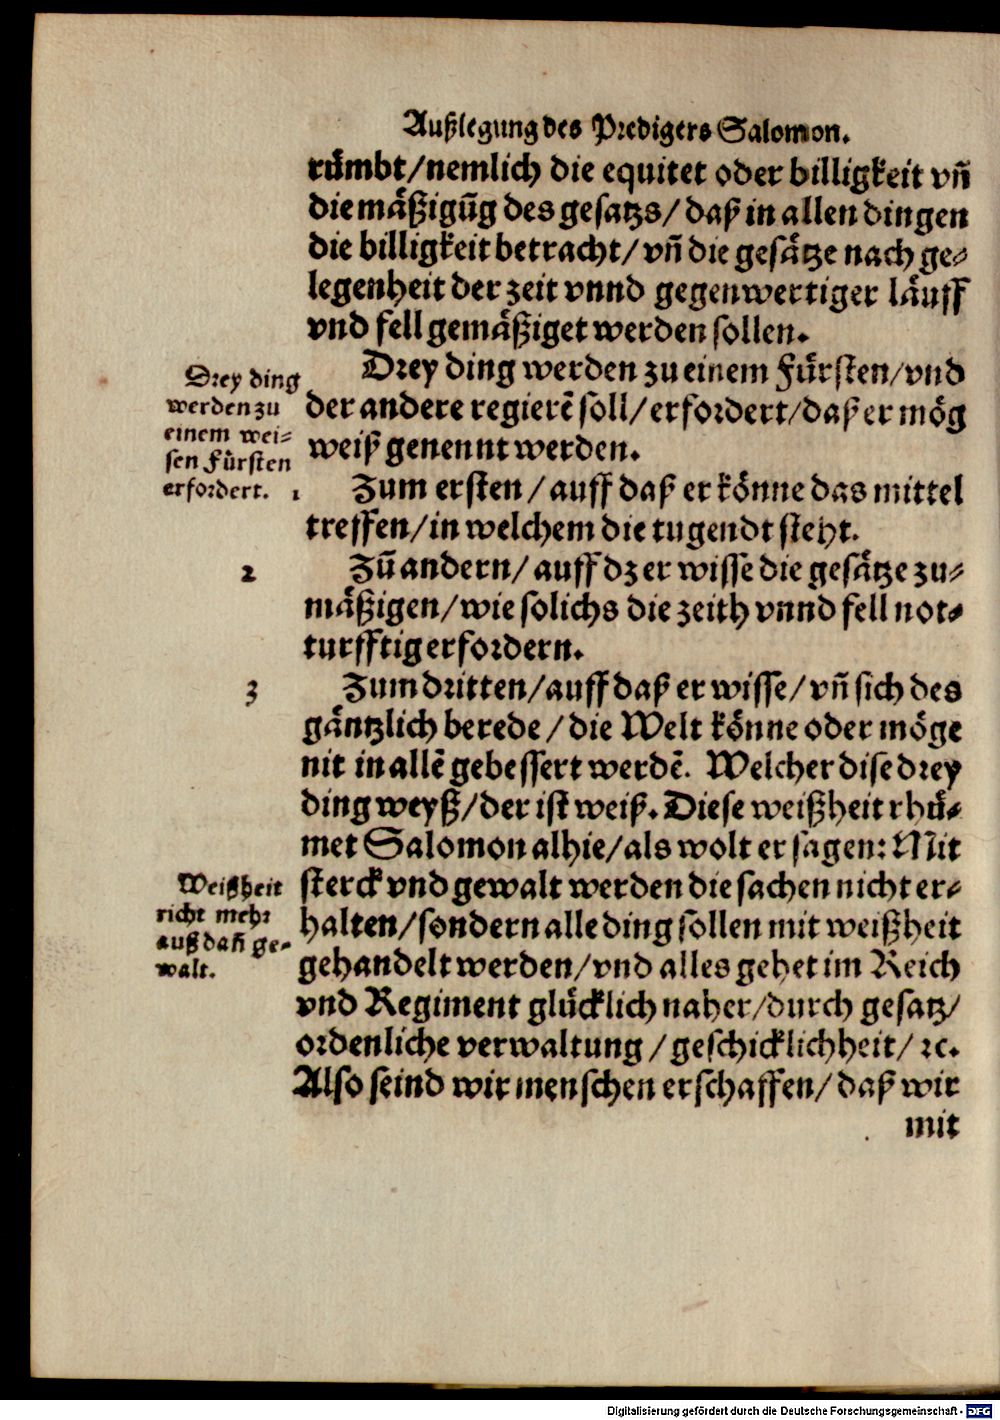 Außlegung des Predigers Salomon.
růmbt/nemlich die equitet oder billigkeit vñ
die mäßigũg des gesatzs/ daß in allen dingen
die billigkeit betracht/ vñ die gesätze nach ge-
legenheit der zeit vnnd gegenwertiger läuff
vnd fell gemäßiget werden sollen.
Drey ding werden zu einem Fürsten/vnd
der andere regierẽ soll/ erfordert/daß er mög
weiß genennt werden.
Drey ding
werden zu
einem wei-
sen Fürsten
erfordert.
1 Zum ersten / auff daß er könne das mittel
treffen/in welchem die tugendt steht.
2 Zũ andern/ auff dz er wisse die gesätze zu-
mäßigen/wie solichs die zeith vnnd fell not-
turfftig erfordern.
3 Zum dritten/auff daß er wisse/ vñ sich des
gäntzlich berede / die Welt könne oder möge
nit in allẽ gebessert werdẽ. Welcher dise drey
ding weyß/der ist weiß. Diese weißheit rhů-
met Salomon alhie/als wolt er sagen: Mit
sterck vnd gewalt werden die sachen nicht er-
halten/sondern alle ding sollen mit weißheit
gehandelt werden/vnd alles gehet im Reich
vnd Regiment glücklich naher/durch gesatz/
ordenliche verwaltung / geschicklichheit/ ꝛc.
Also seind wir menschen erschaffen/ daß wir
Weißheit
richt mehr
auß dañ ge-
walt.
mit
Digitalisierung gefördert durch die Deutsche Forschungsgemeinschaft - DFG